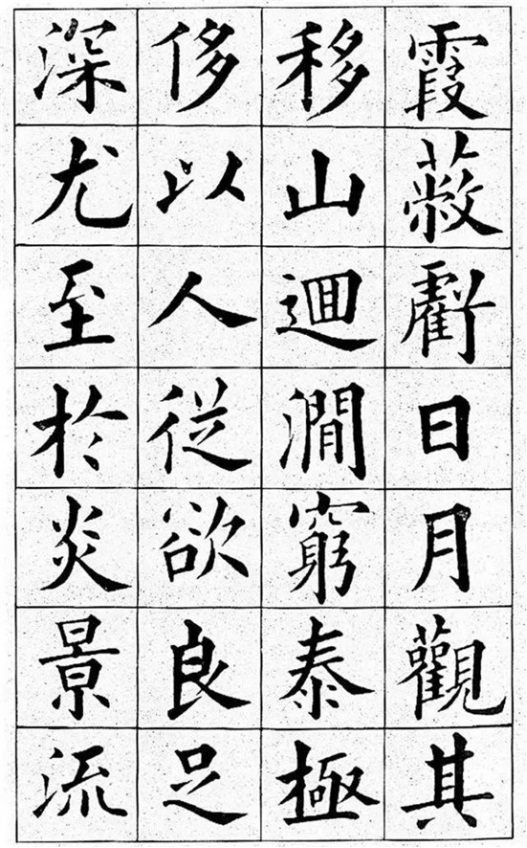 霞蔽虧日月觀其
移山迴澗窮泰極
侈以人従欲良足
深尤至於炎景流